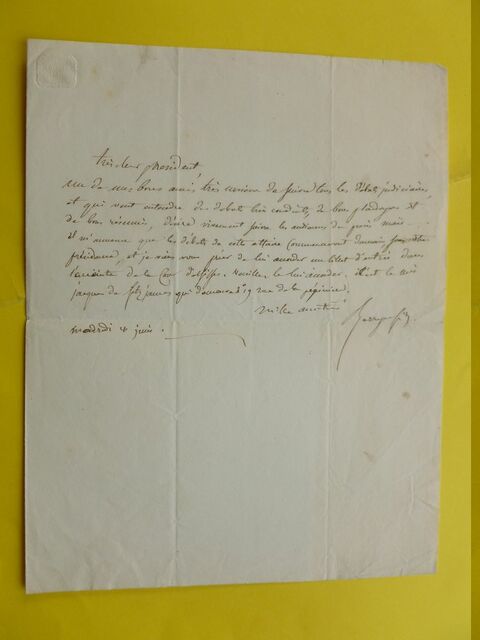 très cher président
un de mes bons amis, très curieux de suivre tous les débats judiciaires
et qui veut entendre de débats bien conduits, de bons plaidoyers et
de bons résumés, désire vivement suivre les audiences du procès
il m'annonce que les débats de cette affaire commenceront demain sous votre
présidence, et je viens vous prier de lui accorder un billet d'entrée dans
l'enceinte de la Cour d'assises. Veuillez le lui accorder. C'est le
jacques de fitzjames qui demeure 19 rue de la pépinière.
mille amitiés
Berryer fils
mardi 4 juin.